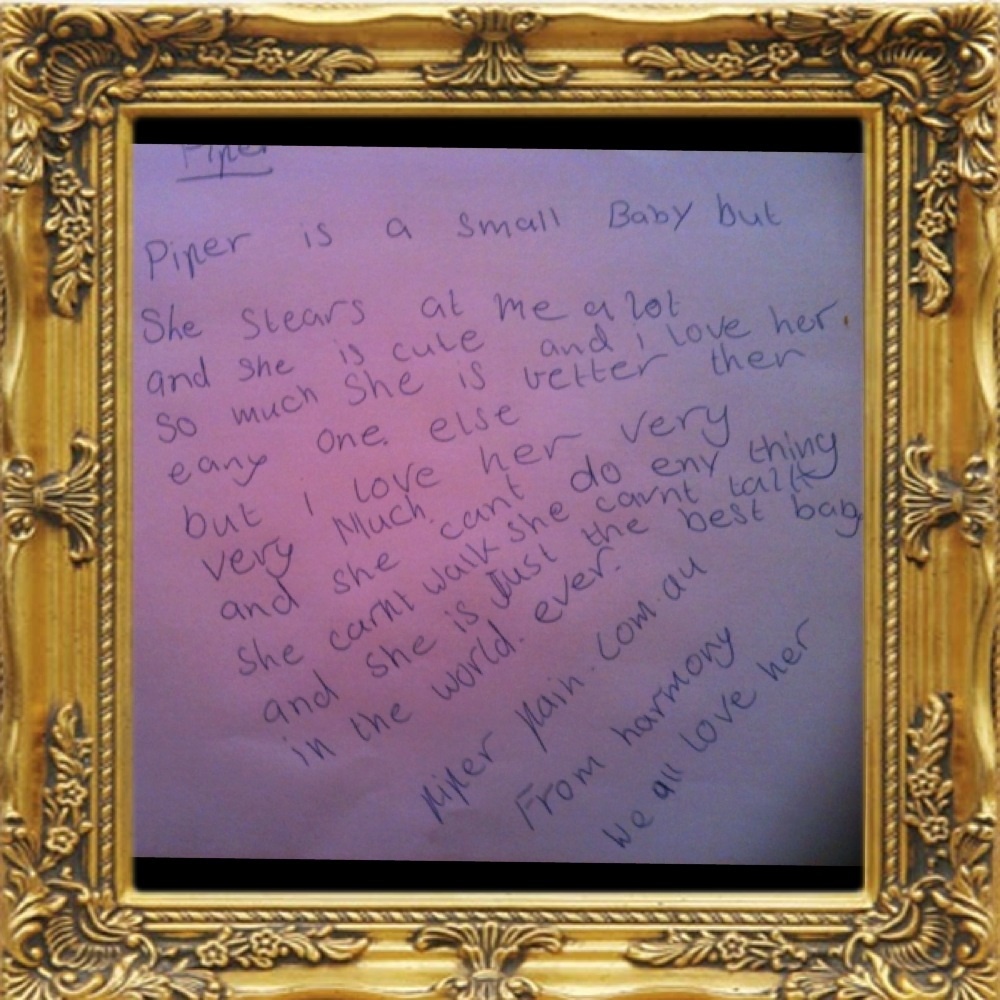 Piper
Piper is a small Baby but
She Stears at me a lot
and she is cute and i love her
so much She is better then
eany one. else
but I love her very
very Much.
and she cant do eny thing
she carnt walk she carnt talk
and she is Just the best baby
in the world. ever.
Piper Pain.com.au
From harmony
We all love her